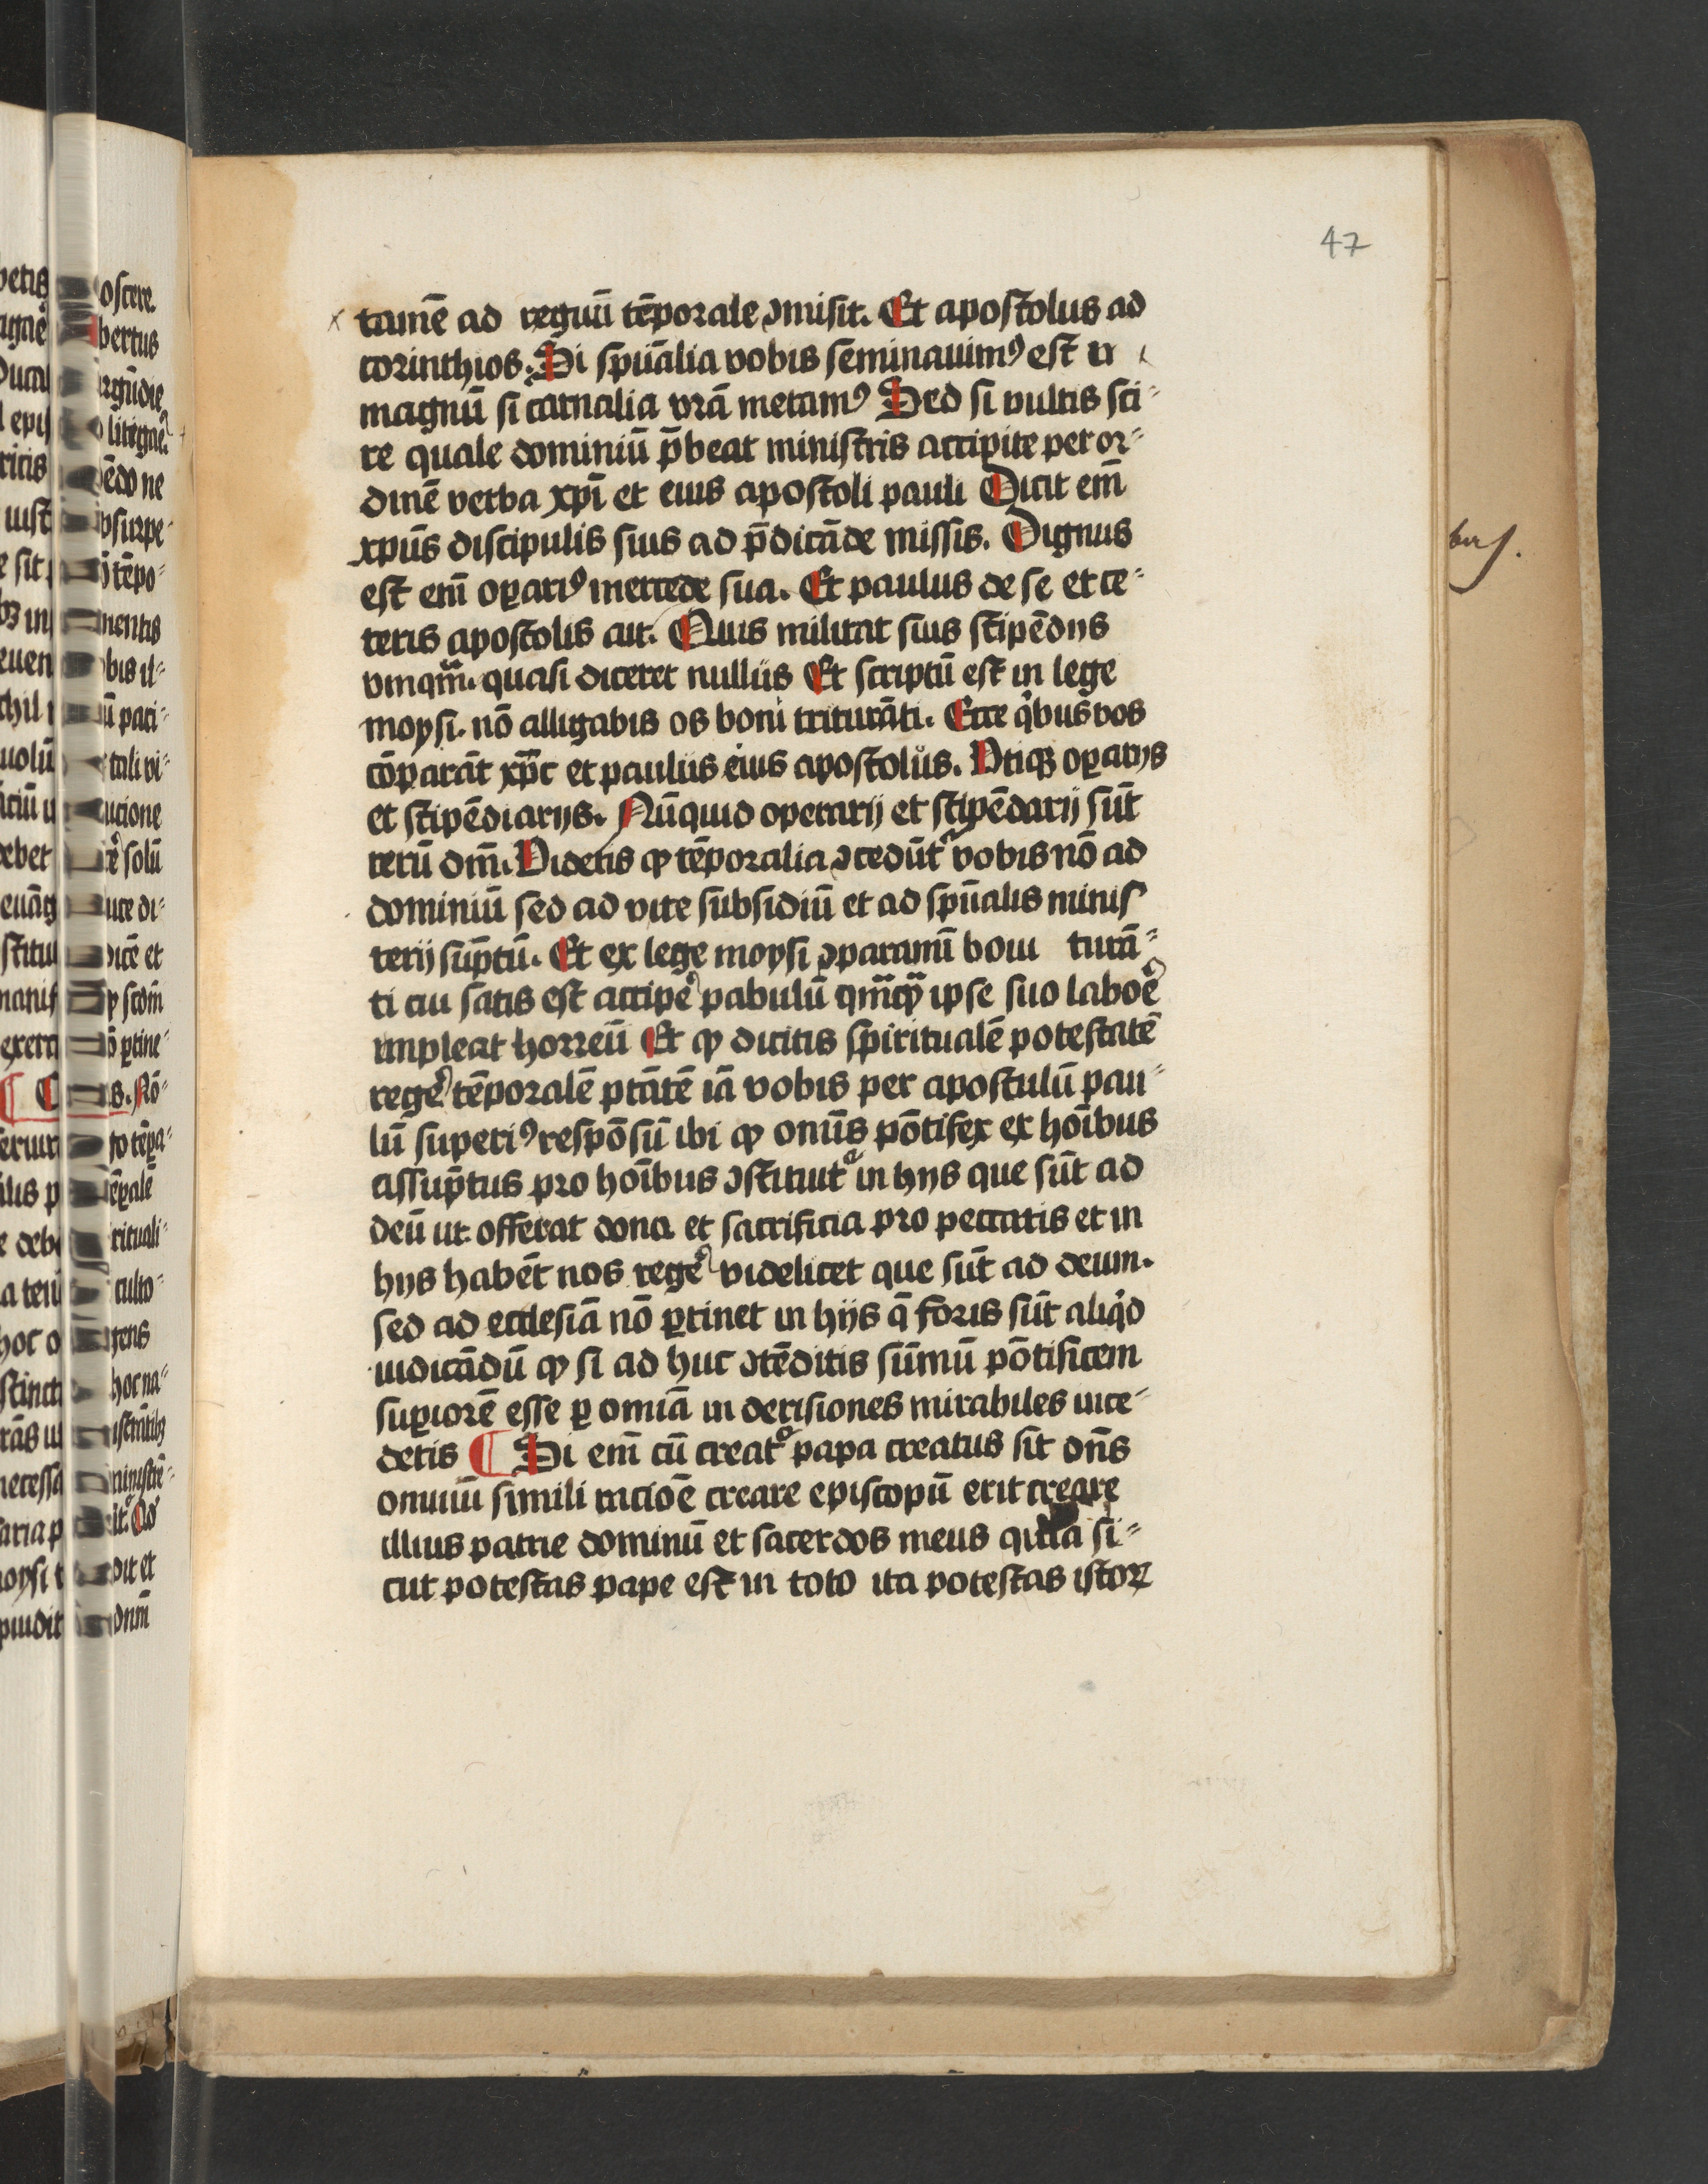 47
tamē ad regnū tēporale ꝯmisit. Et apostolus ad
corinthios. Si spūalia vobis seminauimꝰ est
magnū si carnalia vrā metamꝰ Sed si vultis sci⸗
re quale dominiū p̄beat ministris accipite per or⸗
dinē verba xp̄i et eius apostoli pauli Dicit em̄
xpūs discipulis suis ad p̄dicāde missis. Dignus
est em̄ oꝑariꝰ mercede sua. Et paulus de se et ce⸗
teris apostolis ait. Quis militat suis stipēdijs
vmqm̄. quasi diceret nullus Et scriptū est in lege
moysi. nō alligabis os boui triturāti. Ecce qͥbus vos
cōparāt xp̄c et paulus eius apostolus. Vtiqꝫ oꝑarijs
et stipēdiarijs. Nūquid operarij et stipēdarij sūt
rerū dn̄i. Videtis ꝙ tēporalia ꝯcedūtᷣ vobis nō ad
dominiū sed ad vite subsidiū et ad spūalis minis
terij sūptū. Et ex lege moysi ꝯparamī boui turā⸗
ti cui satis est accipeͬ pabulū qm̄cūqꝫ ipse suo laboēͬ
impleat horreū Et ꝙ dicitis spiritualē potestatē
regeͬ tēporalē ptātē iā vobis per apostulū pau⸗
lū superiꝰ respōsū ibi ꝙ omīs pōtifex ex hoībus
assūptus pro hoībus ꝯstituitᷣ in hijs que sūt ad
deū ut offerat dona et sacrificia pro peccatis et in
hijs habēt nos regeͬ videlicet que sūt ad deum.
sed ad ecclesiā nō ꝑtinet in hijs q̄ foris sūt aliqͥd
iudicādū ꝙ si ad huc ꝯtēditis sūmū pōtificem
suꝑiorē esse ꝑ omīa in derisiones mirabiles ince⸗
detis ¶ Si em̄ cū creatᷣ papa creatus sit dn̄s
omniū simili racioē creare episcopū erit creare
illius patrie dominū et sacerdos meus quia si⸗
cut potestas pape est in toto ita potestas istoꝝ